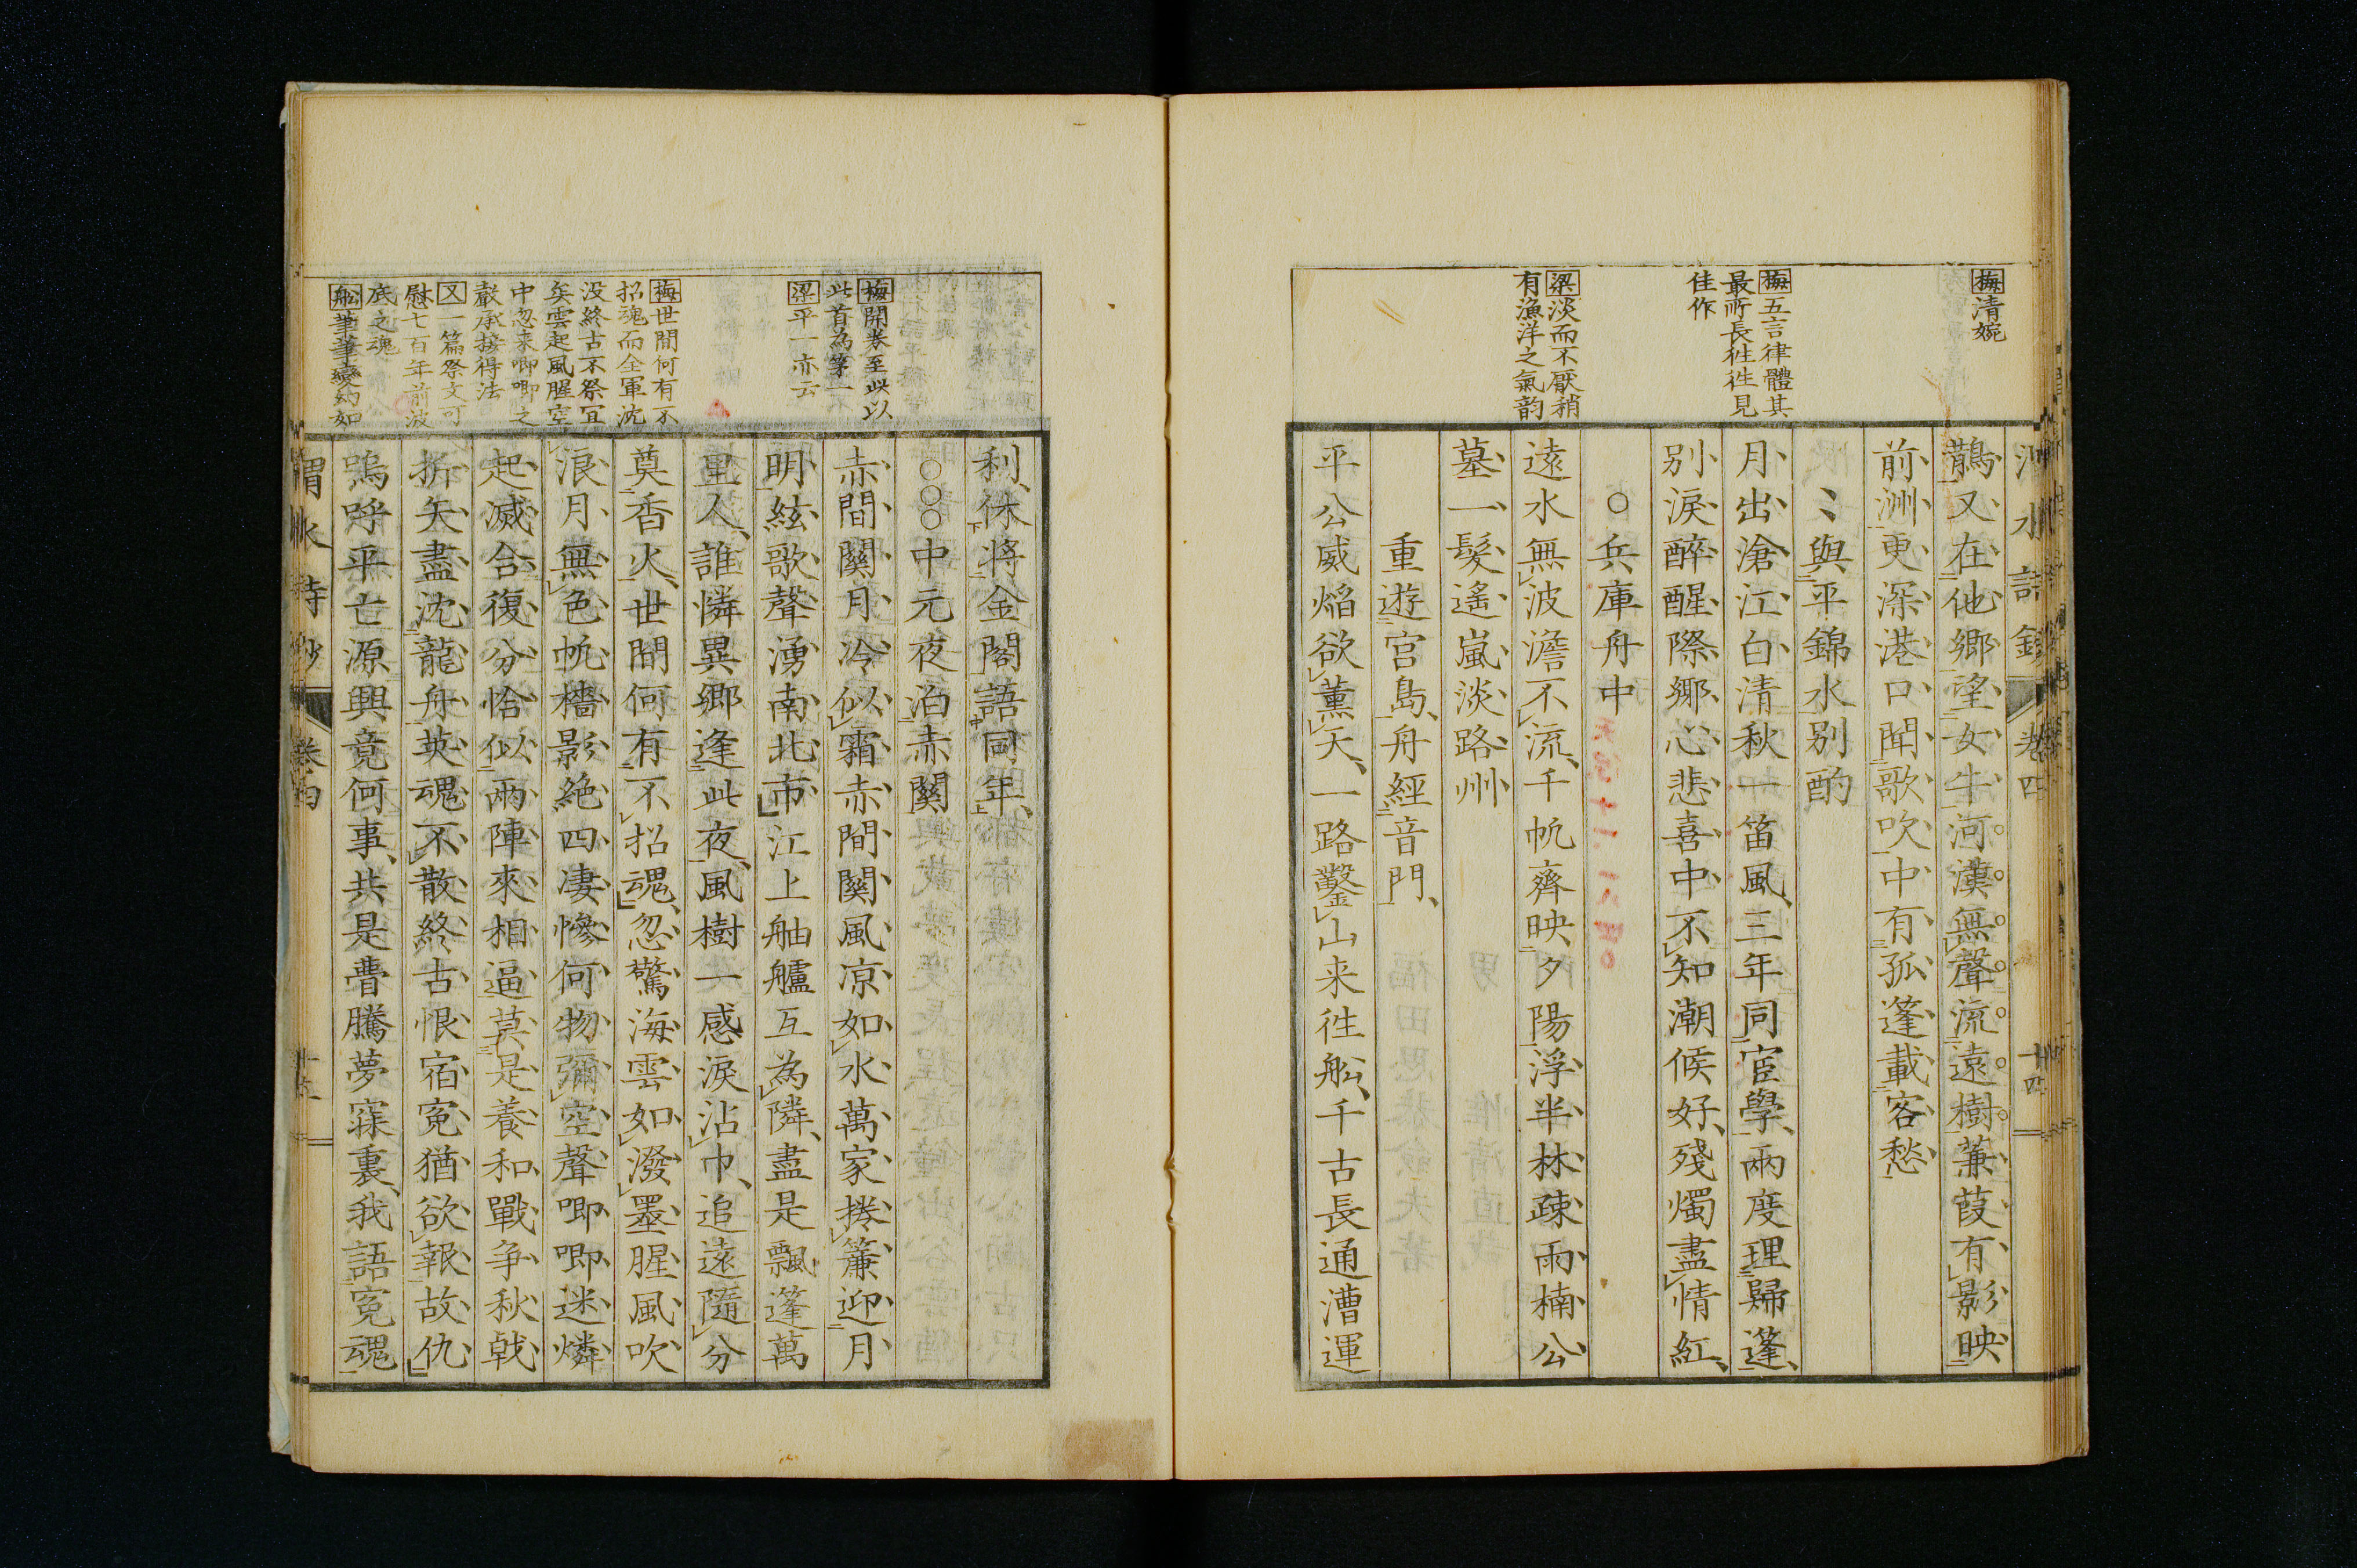 梅清婉
梅五言律體其
最所長徃徃見
佳作
梁淡而不厭稍
有漁洋之氣韵
鵲又在他鄉望女牛河漢無聲流遠樹蒹葭有影映
前洲更深港口聞歌吹中有孤篷載客愁
〻與平錦水別酌
月出滄江白清秋一笛風三年同宦學兩度理歸篷
別淚醉醒際鄉心悲喜中不知潮候好殘燭盡情紅
○兵庫舟中
遠水無波澹不流千帆齊映夕陽浮半林疎雨楠公
墓一髮遙嵐淡路州
重遊宮島舟經音門
平公威焰欲薰天一路鑿山来徃船千古長通漕運
梅開卷至此以
此首為第一
梁平一亦云
梅世間何有不
招魂而全軍沈
没終古不祭冝
矣雲起風腥空
中忽来唧唧之
聲承接得法
又一篇祭文可
慰七百年前波
底之魂
船筆筆變幻如
利休將金閣語同年
○○○中元夜泊赤關
赤間關月冷似霜赤間關風凉如水萬家捲簾迎月
明絃歌聲湧南北市江上舳艫互為隣盡是飄蓬萬
里人誰憐異鄉逢此夜風樹一感淚沾巾追遠隨分
奠香火世間何有不招魂忽驚海雲如潑墨腥風吹
浪月無色帆檣影絶四凄慘何物彌空聲唧唧迷燐
起滅合復分恰似兩陣來相逼莫是養和戰争秋戟
折矢盡沈龍舟英魂不散終古恨宿寃猶欲報故仇
嗚呼平亡源興竟何事共是瞢騰夢寐裏我語寃魂